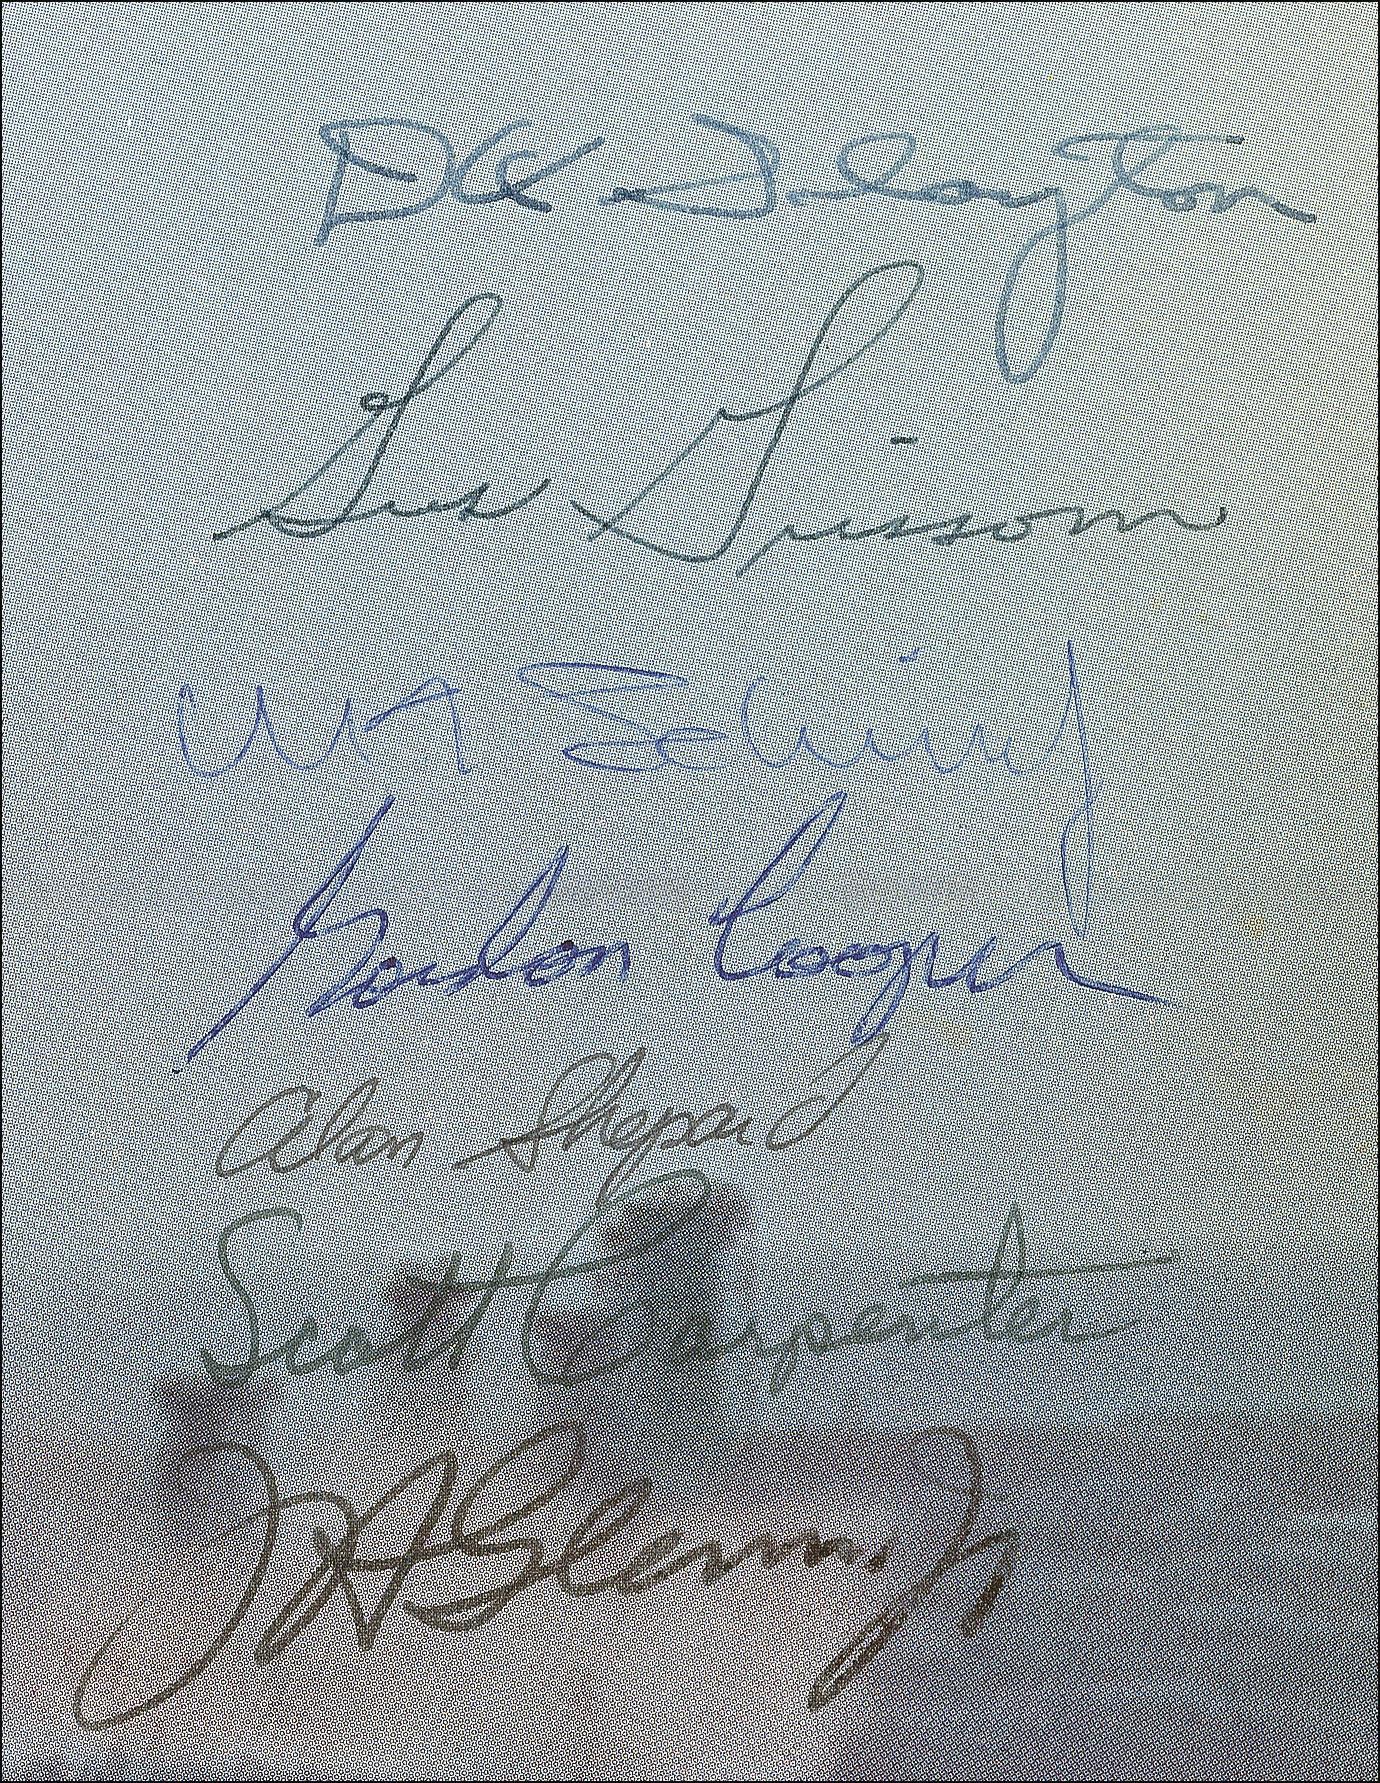 DK Slayton
Gus Grissom
W M Schirra
Gordon Cooper
Alan Shepard
Scott Carpenter
JH Glenn, Jr.